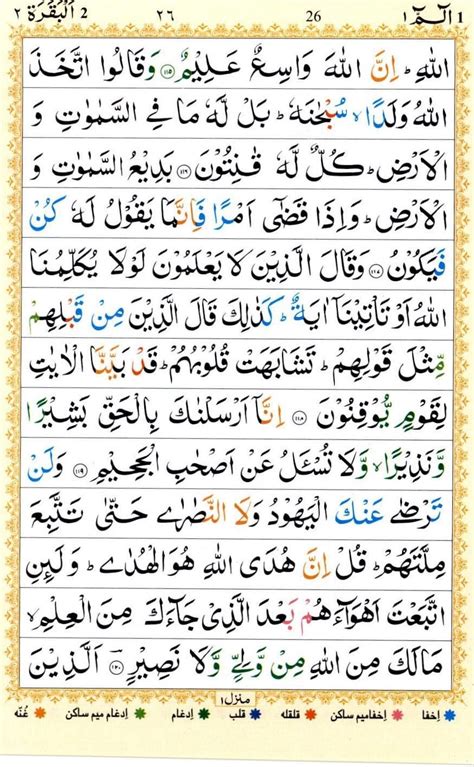 الٓمّٓ ١ 1 26 ٢٦ اَلْبَقَرَة ٢ 2
اللّٰهِ ؕ اِنَّ اللّٰهَ وَاسِعٌ عَلِيْمٌ ﴿۱۱۵﴾ وَقَالُوا اتَّخَذَ
اللّٰهُ وَلَدًا ۙ سُبْحٰنَهٗ ؕ بَلْ لَّهٗ مَا فِى السَّمٰوٰتِ وَ
الْاَرْضِ ؕ كُلٌّ لَّهٗ قٰنِتُوْنَ ﴿۱۱۶﴾ بَدِيْعُ السَّمٰوٰتِ وَ
الْاَرْضِ ؕ وَاِذَا قَضٰٓى اَمْرًا فَاِنَّمَا يَقُوْلُ لَهٗ كُنْ
فَيَكُوْنُ ﴿۱۱۷﴾ وَقَالَ الَّذِيْنَ لَا يَعْلَمُوْنَ لَوْلَا يُكَلِّمُنَا
اللّٰهُ اَوْ تَاْتِيْنَآ اٰيَةٌ ؕ كَذٰلِكَ قَالَ الَّذِيْنَ مِنْ قَبْلِهِمْ
مِّثْلَ قَوْلِهِمْ ؕ تَشَابَهَتْ قُلُوْبُهُمْ ؕ قَدْ بَيَّنَّا الْاٰيٰتِ
لِقَوْمٍ يُّوْقِنُوْنَ ﴿۱۱۸﴾ اِنَّآ اَرْسَلْنٰكَ بِالْحَقِّ بَشِيْرًا
وَّنَذِيْرًا ۙ وَّلَا تُسْـَٔلُ عَنْ اَصْحٰبِ الْجَحِيْمِ ﴿۱۱۹﴾ وَلَنْ
تَرْضٰى عَنْكَ الْيَهُوْدُ وَلَا النَّصٰرٰى حَتّٰى تَتَّبِعَ
مِلَّتَهُمْ ؕ قُلْ اِنَّ هُدَى اللّٰهِ هُوَ الْهُدٰى ؕ وَلَئِنِ
اتَّبَعْتَ اَهْوَآءَهُمْ بَعْدَ الَّذِىْ جَآءَكَ مِنَ الْعِلْمِ ۙ
مَا لَكَ مِنَ اللّٰهِ مِنْ وَّلِىٍّ وَّلَا نَصِيْرٍ ﴿۱۲۰﴾ اَلَّذِيْنَ
منزل ۱
اِخفا اِخفا میم ساکن قلقلہ قلب اِدغام اِدغام میم ساکن غُنّہ